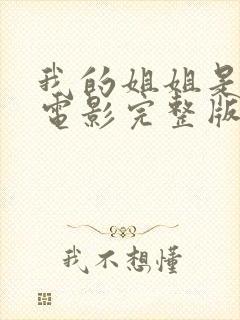 我的姐姐是
電影完整版
我不想懂